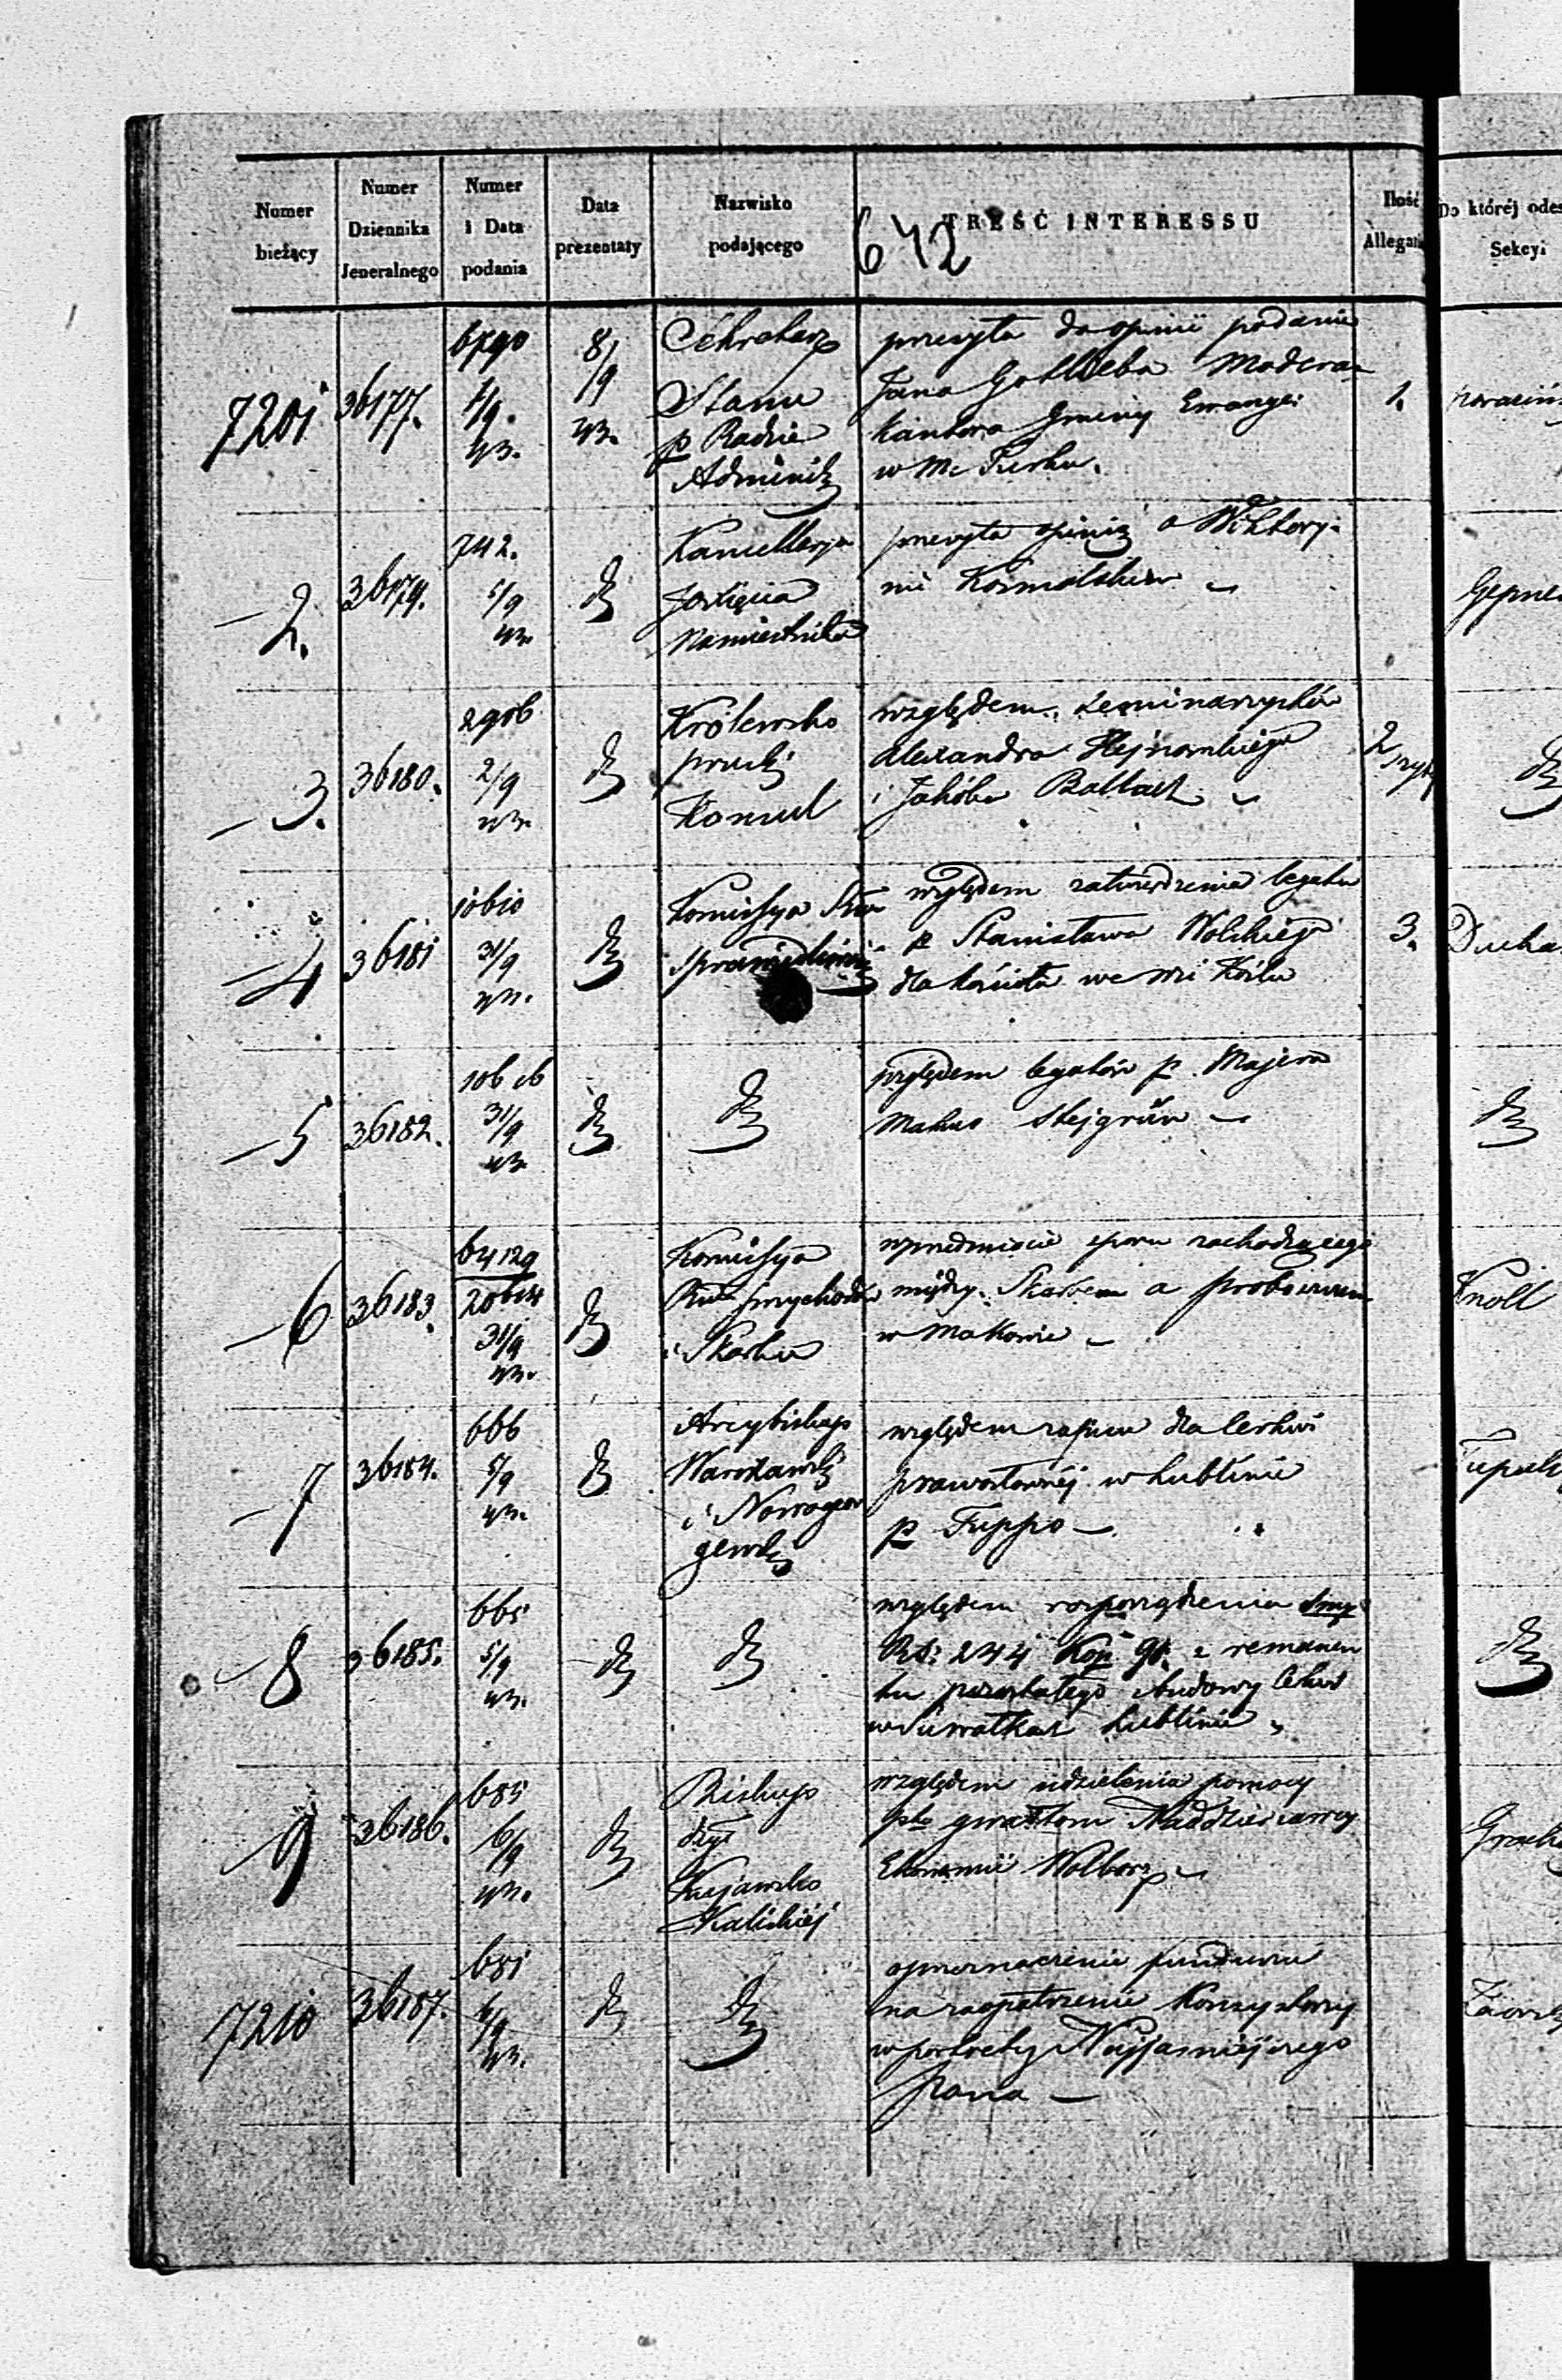 Numer bieżący
Numer Dziennika Jeneralnego
Numer i Data podania
Data prezentaty
Nazwisko podającego
TREŚĆ INTERESSU
Ilość Allegat
Do któréj odes
Sekcyi
642
7201 36177. 6790 4/9. 43. 8/9 43.
Sekretarz
Stanu
p Radzie
Administ
przesyła do opinii podanie
Jana Gottlieba Modera
Kantora Gminy Ewangel:
w M. Turku.
1.
2. 36179. 742. 5/9 43.
Kancellarya
Xsięcia
Namiestnika
przesyła opinię o Wiktory-
nie Kosmalskim
Gepne
3. 36180. 2906 2/9 43.
Królewsko
pruski
Konsul
względem seminarzystów
Alexandra Hejnowskiego
i Jakóba Ballach
2
4 36181 10610 31/9 43.
Komissya
Sprawiedliwości
względem zatwierdzenia legatu
p Stanisława Wolskiego
dla kościoła we wsi Koźlu
3.
Ducha
5 36182. 10616 31/9 43
względem legatów p. Majera
6 36183. 64129 20614 31/9 43.
Komissya
Przychodów
i Skarbu
w przedmiocie sporu zachodzącego
między Skarbem a proboszczem
w Makowie
Knoll
7 36184. 666 5/9 43.
Arcybiskup
Warszawski
i Nowogeor
giewski
względem zajęcia dla Cerkwi
prawosławnéj w Lublinie
p
8 36185. 665 5/9 43.
względem rozporządzenia
Rs: 244 Kop 90. z remanen
tu pozostałego z budowy Cerkwi
w Suwałkach Lublinie
9 36186. 685 6/9 43.
Biskup
dyec
Kujawsko
Kaliskiéj
względem udzielenia pomocy
pko gwałtom Naddzierżawcy
Ekonomii Wolborz
7210 36187. 681 6/9 43.
o przeznaczenie funduszu
na zaopatrzenie Konsystorzy
w portrety Najjaśniejszego
Pana